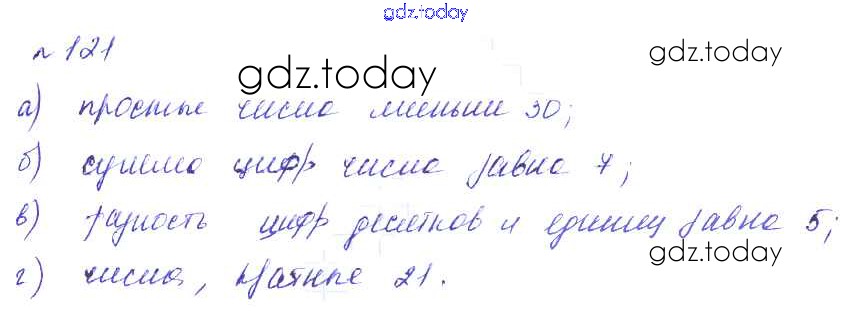 gdz.today
№ 121
gdz.today
gdz.today
а) простые числа меньши 30;
б) сумма цифр числа равна 7;
в) разность цифр десятков и единиц равна 5;
г) числа, кратные 21.
gdz.today
gdz.today